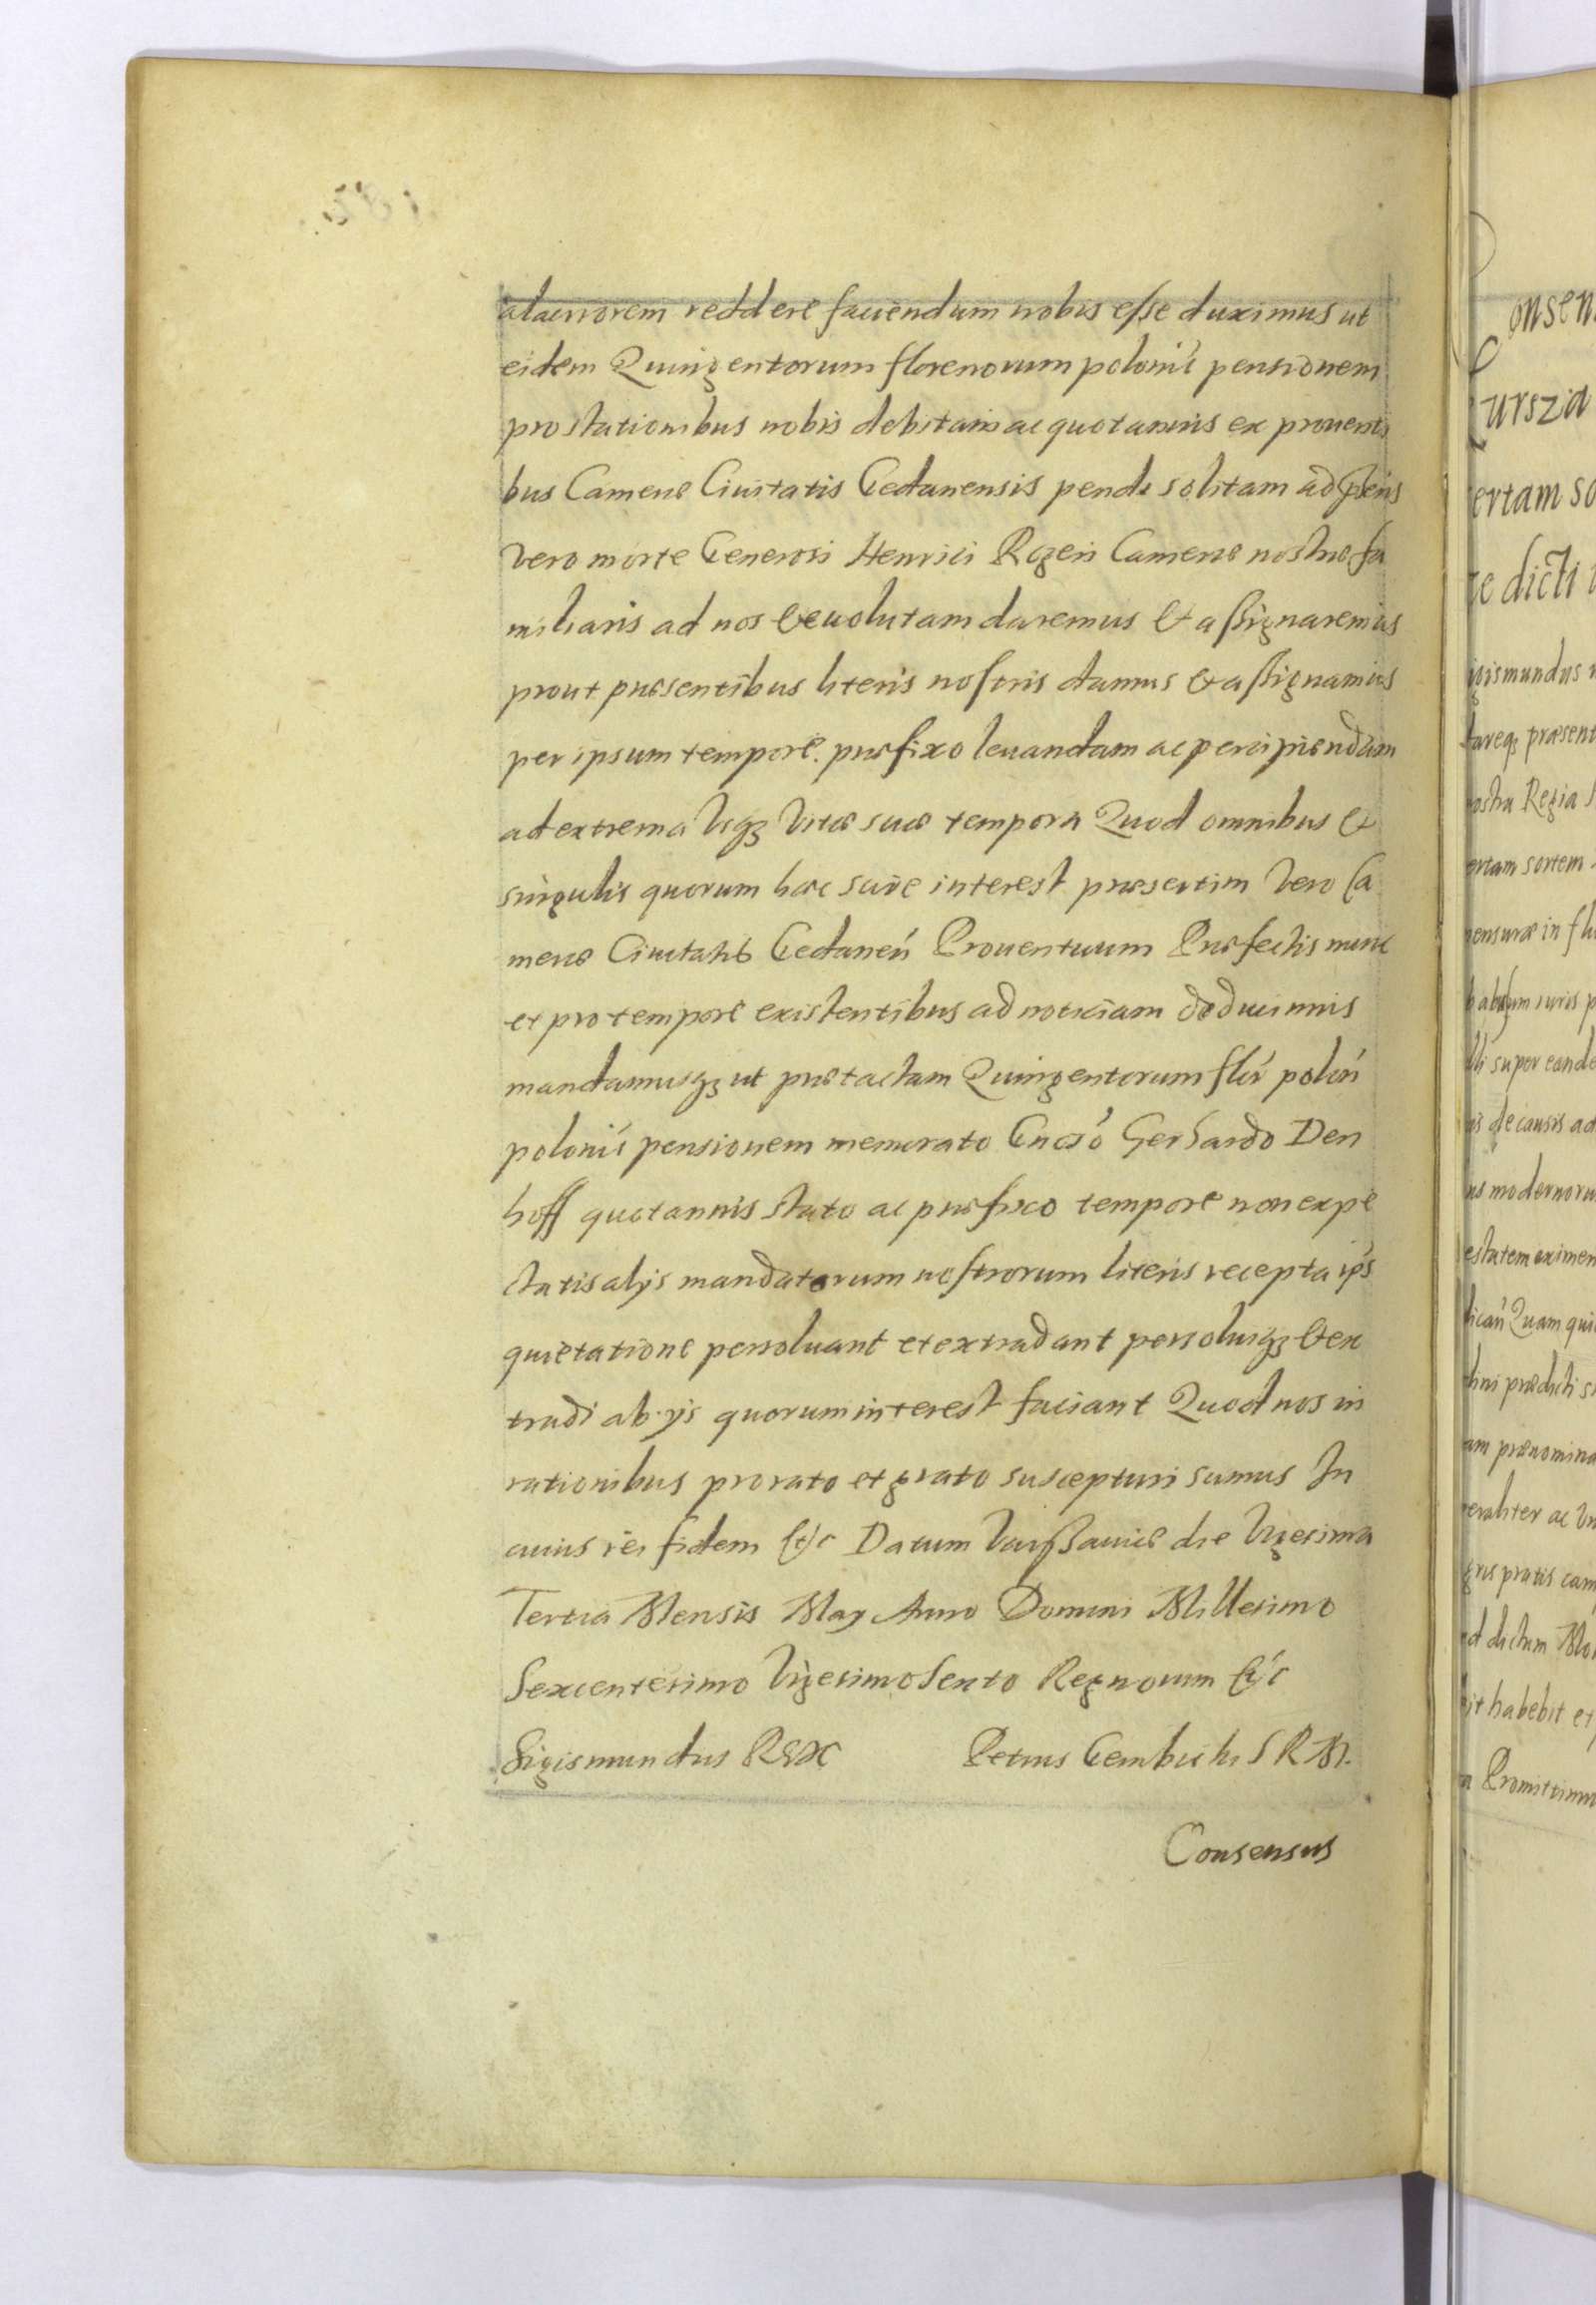 alacriorem reddere faciendum nobis esse duximus ut
eidem Quingentorum florenorum polonić pensionem
pro stationibus nobis debitam ac quotannis ex prouenti
bus Cameræ Ciuitatis Gedanensis pendi solitam ad præns
vero morte Generosi Henrici Rogeri Cameræ nostræ fa
miliaris ad nos deuolutam daremus & assignaremus
prout præsentibus literis nostris damus & assignamus
per ipsum tempore præfixo leuandam ac percipiendam
ad extrema Vsqz Vitæ suæ tempora Quod omnibus &
singulis quorum hæc scire interest præsertim Vero Ca
meræ Ciuitatis Gedaneń Prouentuum Præfectis nunc
et pro tempore existentibus ad noticiam deducimus
mandamusqz ut prætactam Quingentorum flór polóń
polonić pensionem memorato Gnoso Gerhardo Den
hoff quotannis stato ac præfixo tempore non expe
ctatis alijs mandatorum nostrorum literis recepta ips
quietatione persoluant et extradant persoluiqz & ex
tradi ab ijs quorum interest faciant Quod nos in
rationibus pro rato et grato suscepturi sumus In
cuius rei fidem &c Datum Varssauiæ die Vigesima
Tertia Mensis May Anno Domini Millesimo
Sexcentesimo Vigesimo Sexto Regnorum &c
Sigismundus REX Petrus Gembicki S R M.
Consensus
onsen
ursza
ertam so
te dicti
igismundus
tareqz præsent
ostra Regia
ertam sortem
mensuræ in
super eande
is de causis ad
us modernoru
estatem eximen
Quam qui
thini prædicti
am prænomina
eraliter ac
gris pratis cam
ad dictum
it habebit et
Promittimu